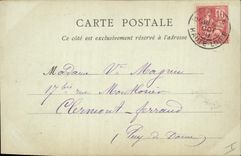 CARTE POSTALE
Ce côté est exclusivement réservé à l'adresse
Madame Vve Magnin
17 bis rue Montlosier
Clermont-ferrand
Puy de Dome